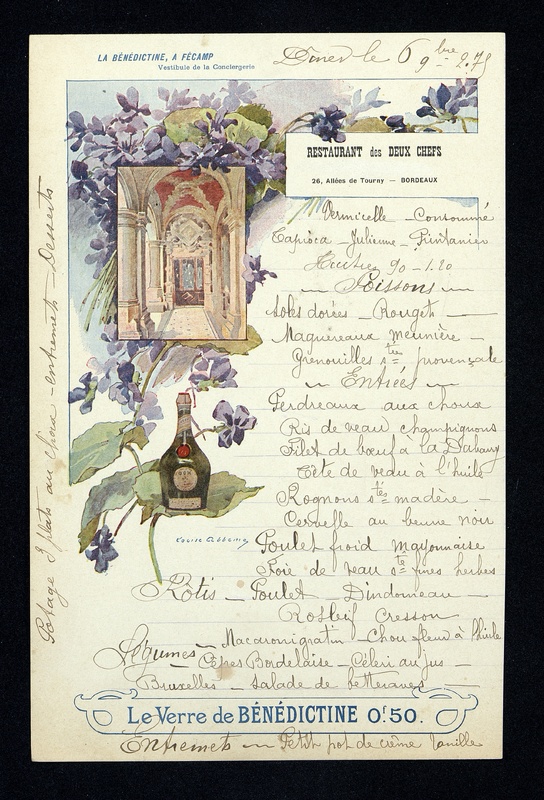 LA BÉNÉDICTINE, A FÉCAMP
Vestibule de la Conciergerie
Dîner le 6 9bre 2.75
RESTAURANT des DEUX CHEFS
26, Allées de Tourny — BORDEAUX
Vermicelle - Consommé
Tapioca - Julienne - Printanier
Huitres 90 - 1.20
Poissons
Soles dorées - Rouget -
Maquereaux meunière -
Grenouilles stées provençale
Entrées
Perdreaux aux choux
Ris de veau champignons
Filet de bœuf à la
Tête de veau à l'huile
Rognons stés madère -
Cervelle au beurre noir
Poulet froid mayonnaise
Foie de veau sté fines herbes
Rotis - Poulet - Dindonneau -
Rosbeif Cresson
Légumes - Macaroni gratin - Chou fleur à l'huile
Cèpes Bordelaise - Céleri au jus -
Bruxelles - Salade de betteraves
Le Verre de BÉNÉDICTINE 0f.50.
Entremets - Petit pot de crème Vanille
Potage 3 plats au choix - entremets - Desserts